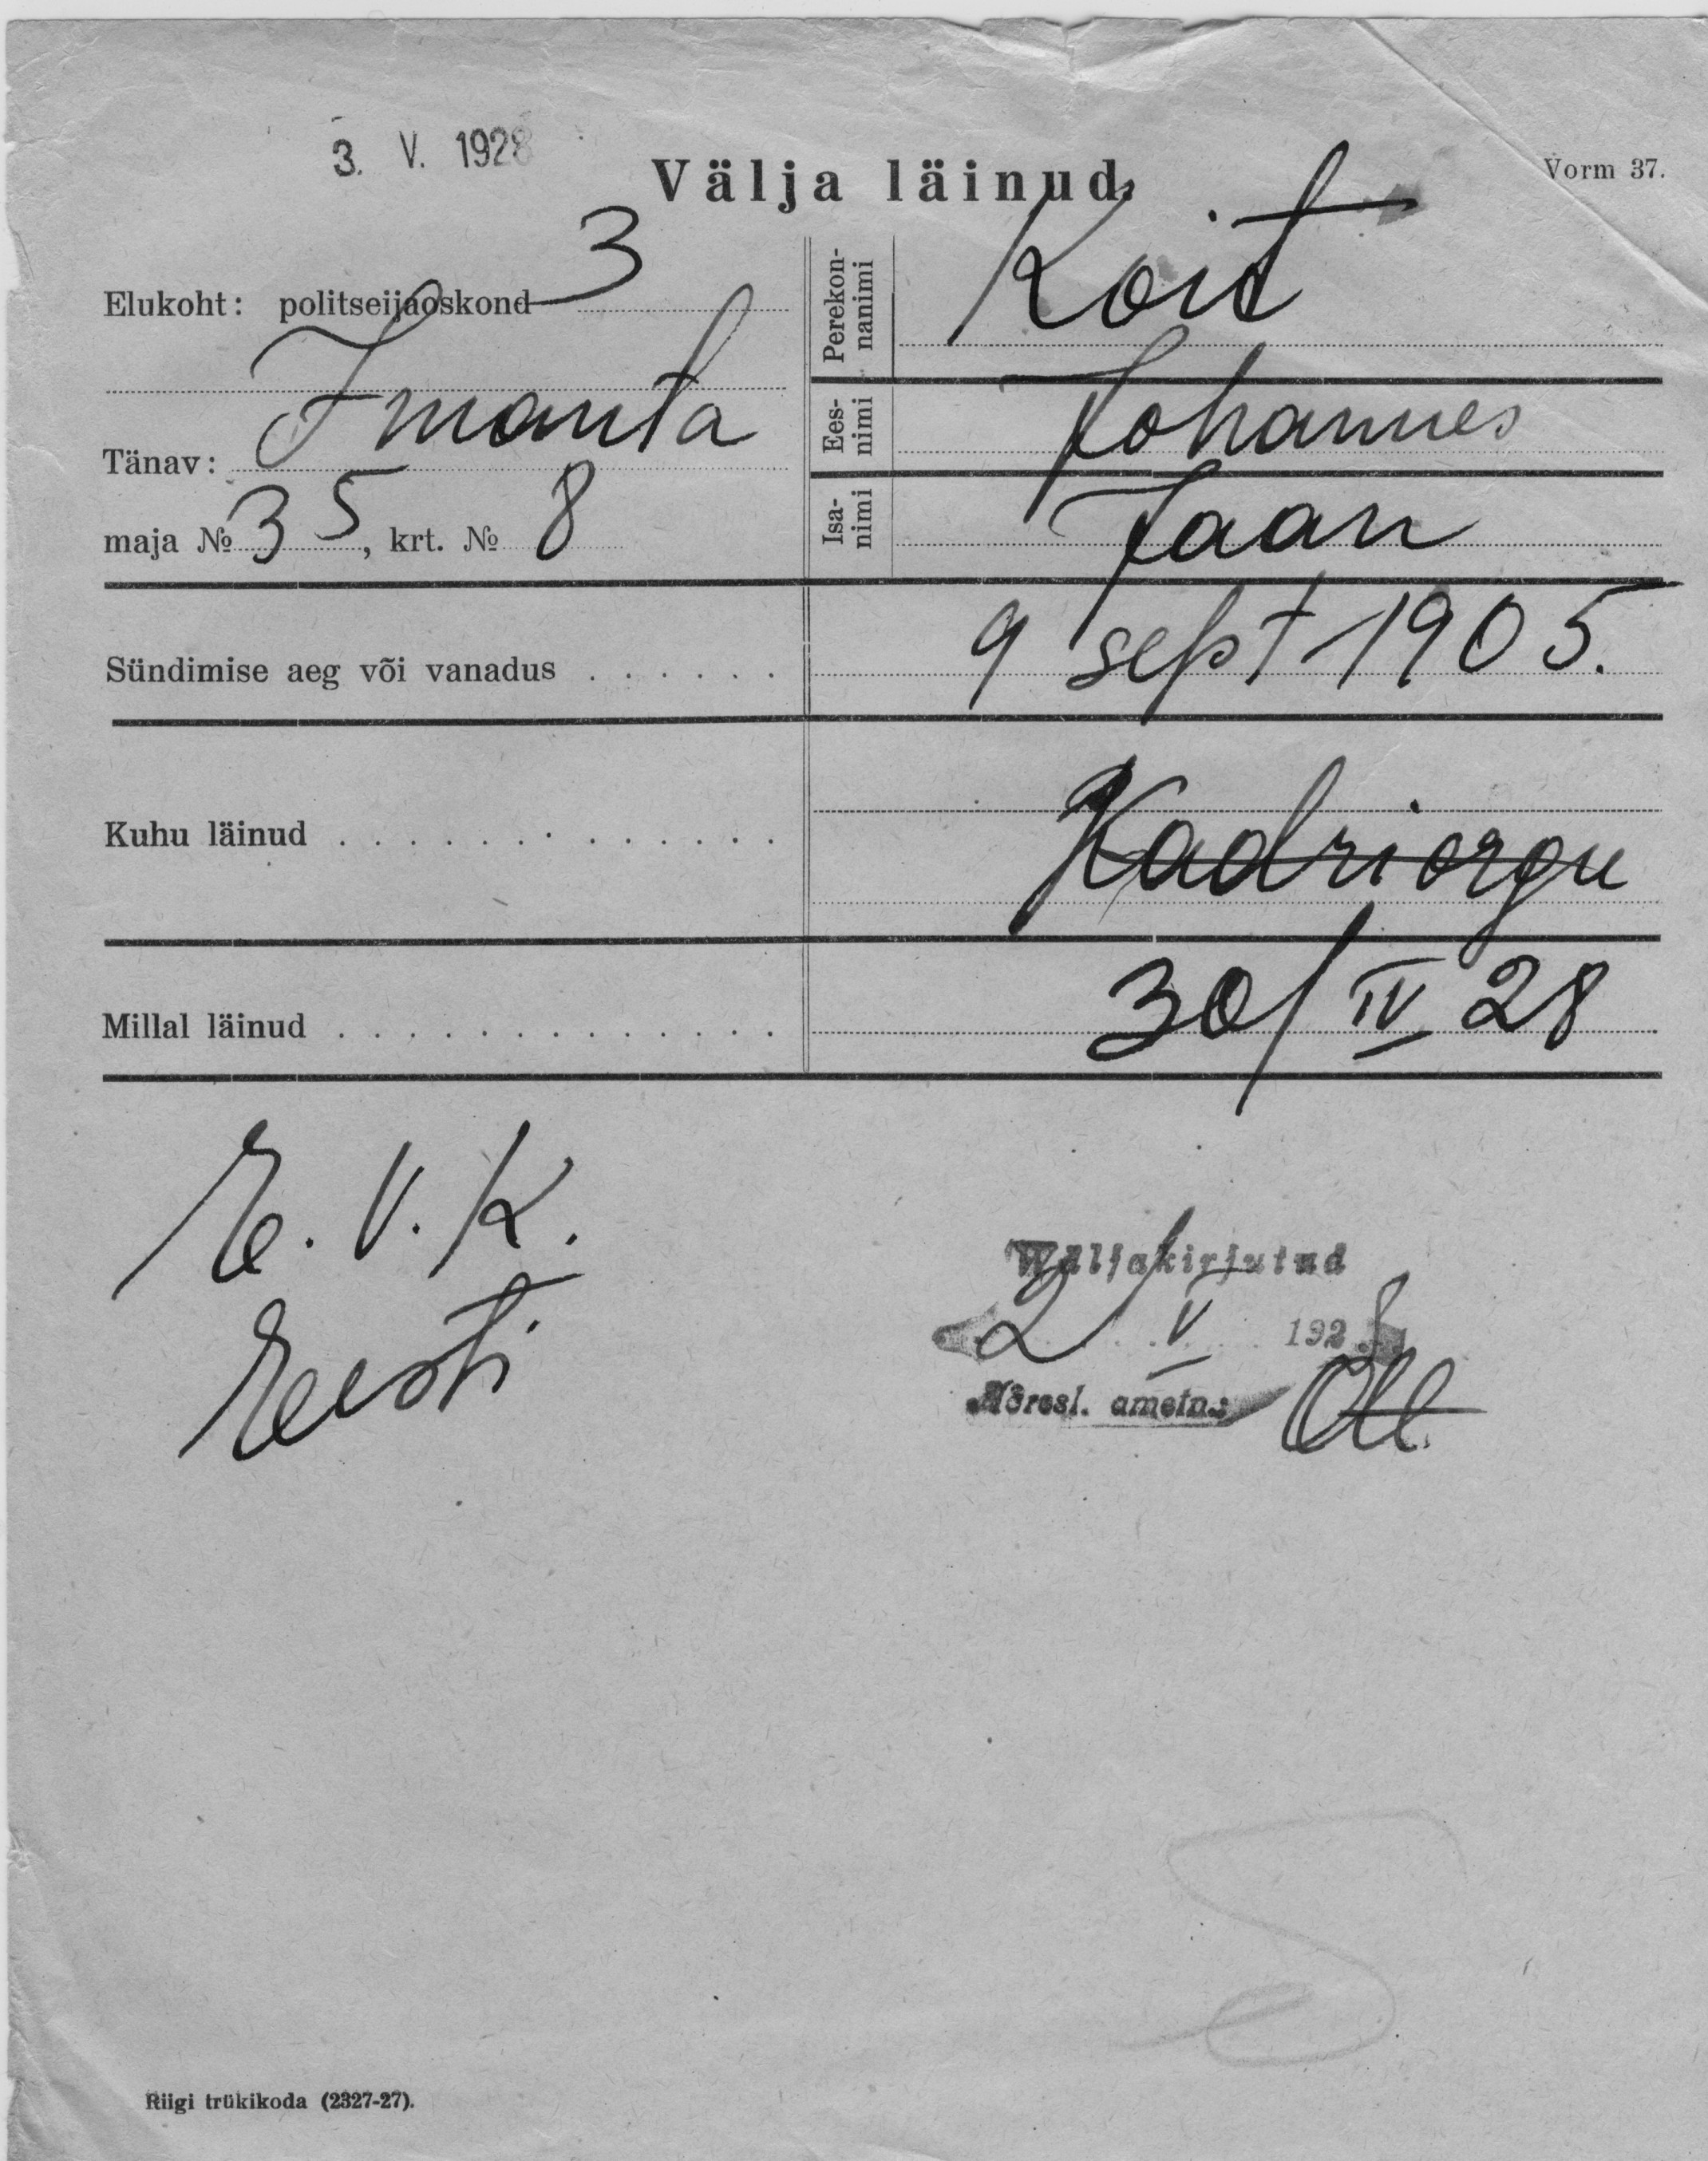 3. V. 1928
Välja läinud.
Vorm 37.
Elukoht: politseijaoskond 3
Imanta
Tänav:
maja № 35, krt. № 8
Perekonnanimi Koit
Eesnimi Johannes
Isanimi Jaan
Sündimise aeg või vanadus . . . . . . 9 sept 1905.
Kuhu läinud . . . . . . . . . . . . . Kadriorgu
Millal läinud . . . . . . . . . . . . . 30/IV 28
E. V. K.
Eesti
Wäljakirjutud
2/V 1928
Aöresl. ametn.:
Riigi trükikoda (2327-27).